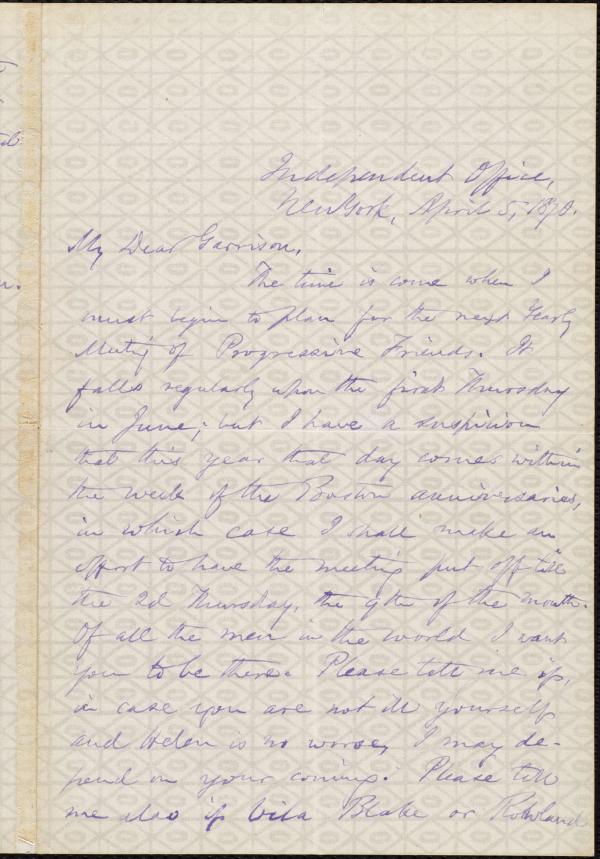 Independent Office,
New York, April 5, 1870.
My Dear Garrison,
The time is come when I
must begin to plan for the next Yearly
Meeting of Progressive Friends. It
falls regularly upon the first Thursday
in June; but I have a suspicion
that this year that day comes within
the week of the Boston anniversaries,
in which case I shall make an
effort to have the meeting put off till
the 2d Thursday, the 9th of the month.
Of all the men in the world I want
you to be there. Please tell me if,
in case you are not ill yourself
and Helen is no worse, I may de-
pend on your coming. Please tell
me also if Lilla Blake or Rowland